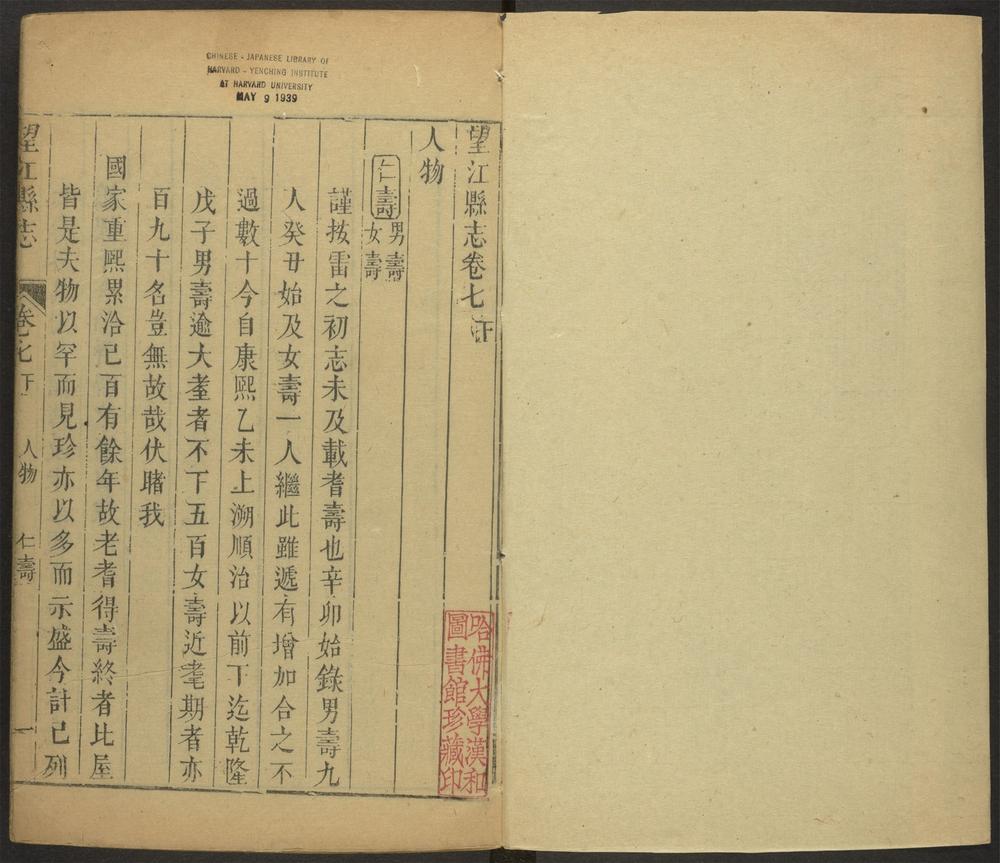 CHINESE - JAPANESE LIBRARY OF
HARVARD - YENCHING INSTITUTE
AT HARVARD UNIVERSITY
MAY 9 1939
望江縣志卷七下
人物
仁壽
男壽
女壽
謹按雷之初志未及載耆壽也辛卯始錄男壽九
人癸丑始及女壽一人繼此雖遞有增加合之不
過數十今自康熙乙未上溯順治以前下迄乾隆
戊子男壽逾大耋者不下五百女壽近耄期者亦
百九十名豈無故哉伏睹我
國家重熙累洽已百有餘年故老耆得壽終者比屋
皆是夫物以罕而見珍亦以多而示盛今計已列
望江縣志
卷七下
人物
仁壽
一
哈佛大學漢和
圖書館珍藏印